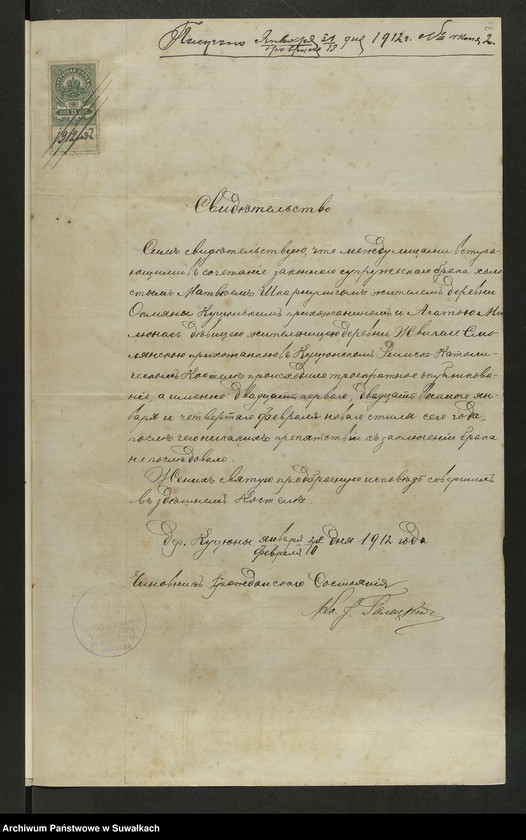 Получено Января 31 / февраля 13 дня 1912 г. №
2
1912
Свидѣтельство
Симъ свидѣтельствую, что между лицами вступа-
ющими въ сочетаніе законнаго супружескаго брака холо-
стымъ Матвѣемъ жителемъ деревни
прихожаниномъ и Агатою
дѣвицею жительницею деревни
прихожанкою въ Куцюнскомъ Римско-Католи-
ческомъ Костелѣ происходило троекратное опубликова-
ніе, а именно двадцать перваго, двадцать восьмого ян-
варя и четвертаго февраля новаго стиля сего года,
послѣ чего никакихъ препятствій къ заключенію брака
не послѣдовало.
Женихъ святую предбрачную исповѣдь совершилъ
въ здѣшнемъ Костелѣ.
Дер. Куцюны января 28 / февраля 10 дня 1912 года
Чиновникъ Гражданскаго Состоянія
Кс.
Archiwum Państwowe w Suwałkach